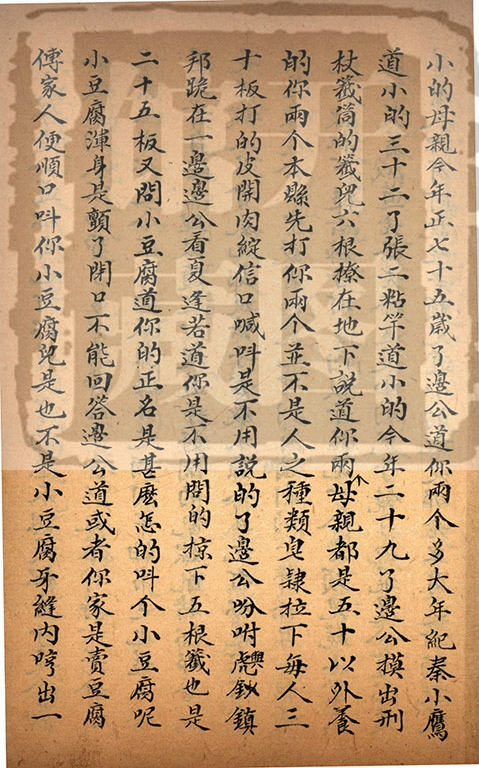 小的母親今年正七十五歲了邊公道你兩个多大年紀秦小鷹
道小的三十二了張二粘竿道小的今年二十九了邊公摸出刑
杖籤筒的籤兒六根撩在地下說道你兩母親都是五十以外養
的你兩个本縣先打你兩个並不是人之種類皂隸拉下每人三
十板打的皮開肉綻信口喊叫是不用說的了邊公吩咐鎮
邦跪在一邊邊公看夏逢若道你是不用問的掠下五根籤也是
二十五板又問小豆腐道你的正名是甚麼怎的叫个小豆腐呢
小豆腐渾身是顫了閉口不能回答邊公道或者你家是賣豆腐
傅家人便順口叫你小豆腐兒是也不是小豆腐牙縫內哼出一